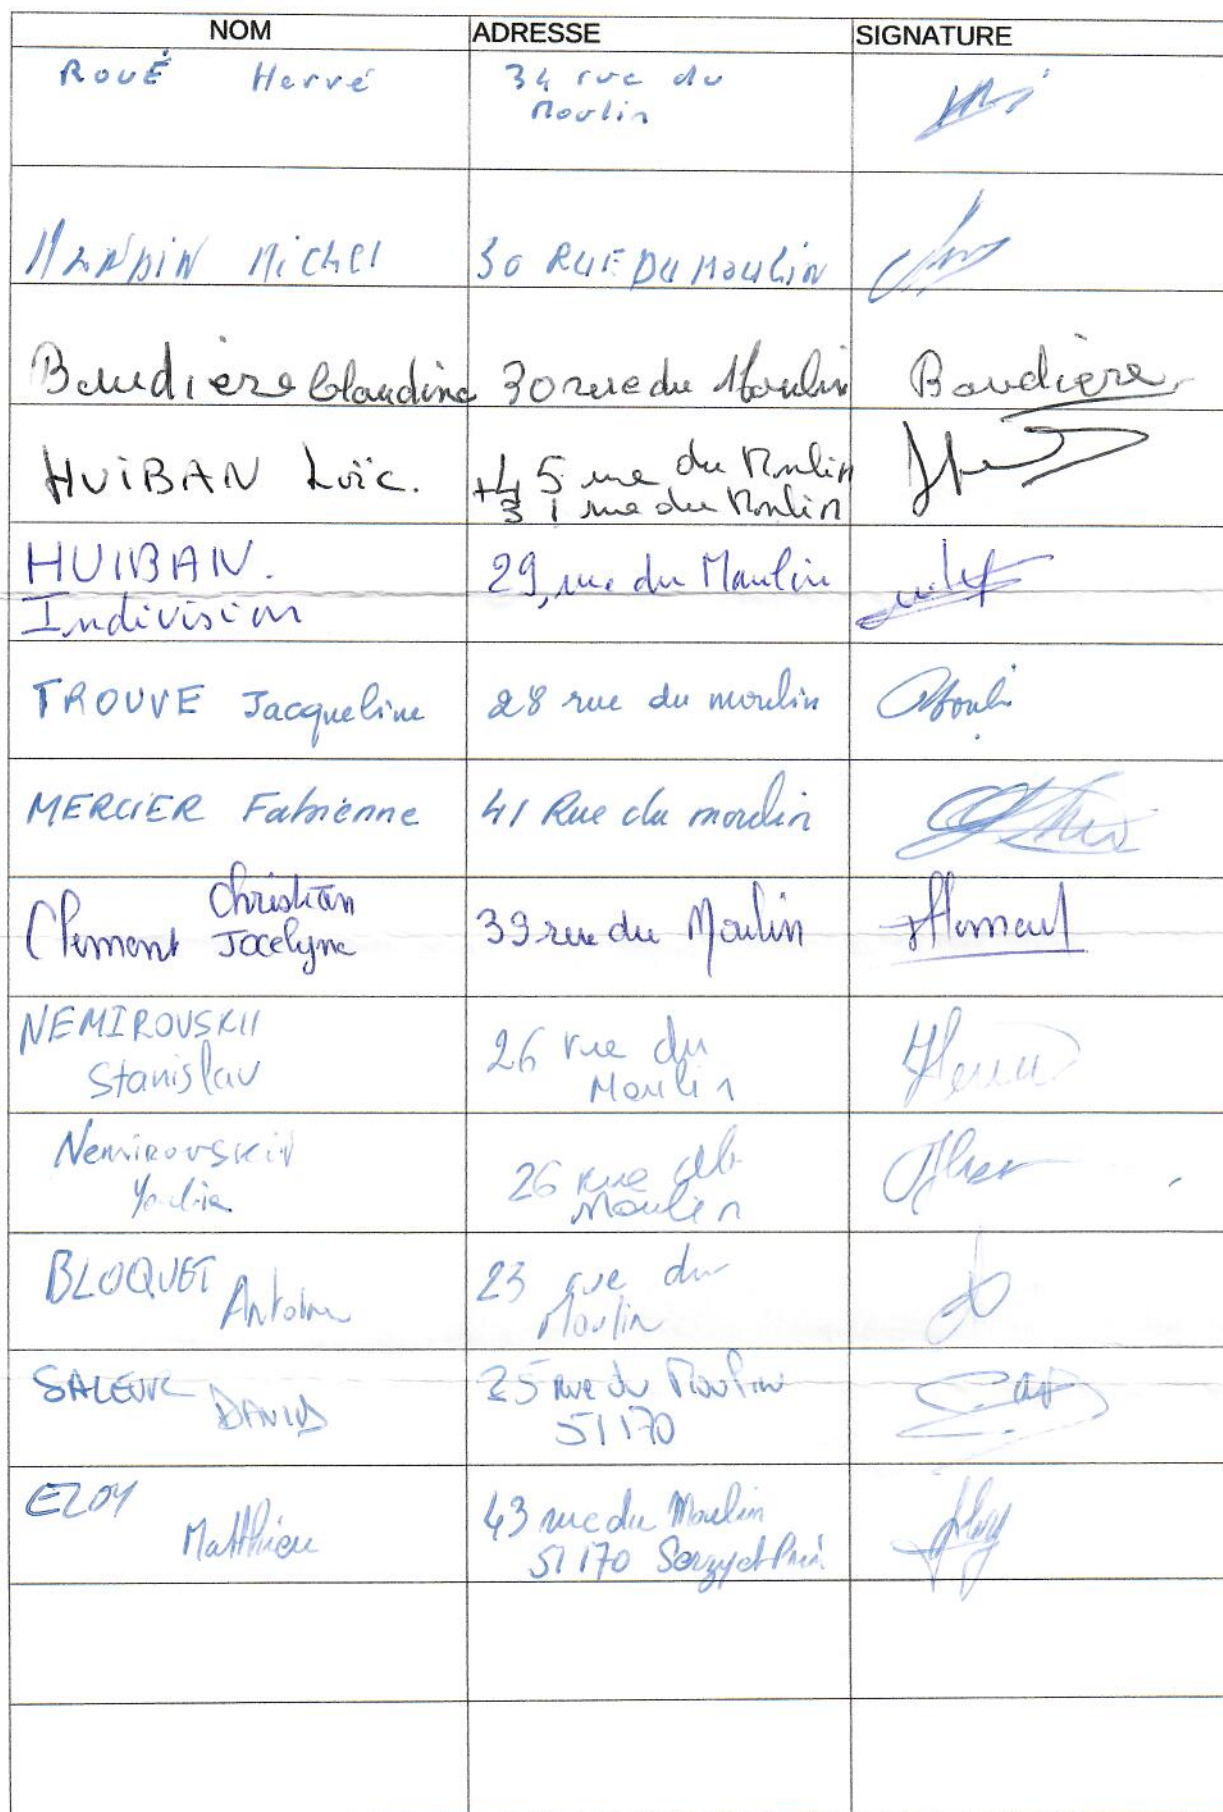 NOM ADRESSE SIGNATURE
ROUÉ Hervé 34 rue du
Moulin
Michel 30 RUE DU Moulin
Baudiere Claudine 30 rue du Moulin Baudière
HUIBAN Loïc. 45 rue du Moulin
+ 31 rue du Moulin
HUIBAN. 29, rue du Moulin
Indivision
TROUVE Jacqueline 28 rue du moulin
MERCIER Fabienne 41 Rue du moulin
Christian
Clement Jocelyne 39 rue du Moulin
NEMIROVSKII 26 rue du
Stanislav Moulin
Nemirovskii 26 rue du
Moulin
BLOQUET Antoine 23 rue du
Moulin
SALEUR DAVID 25 rue du Moulin
51170
ELOY 43 rue du Moulin
Matthieu 51170 Serzy et Prin